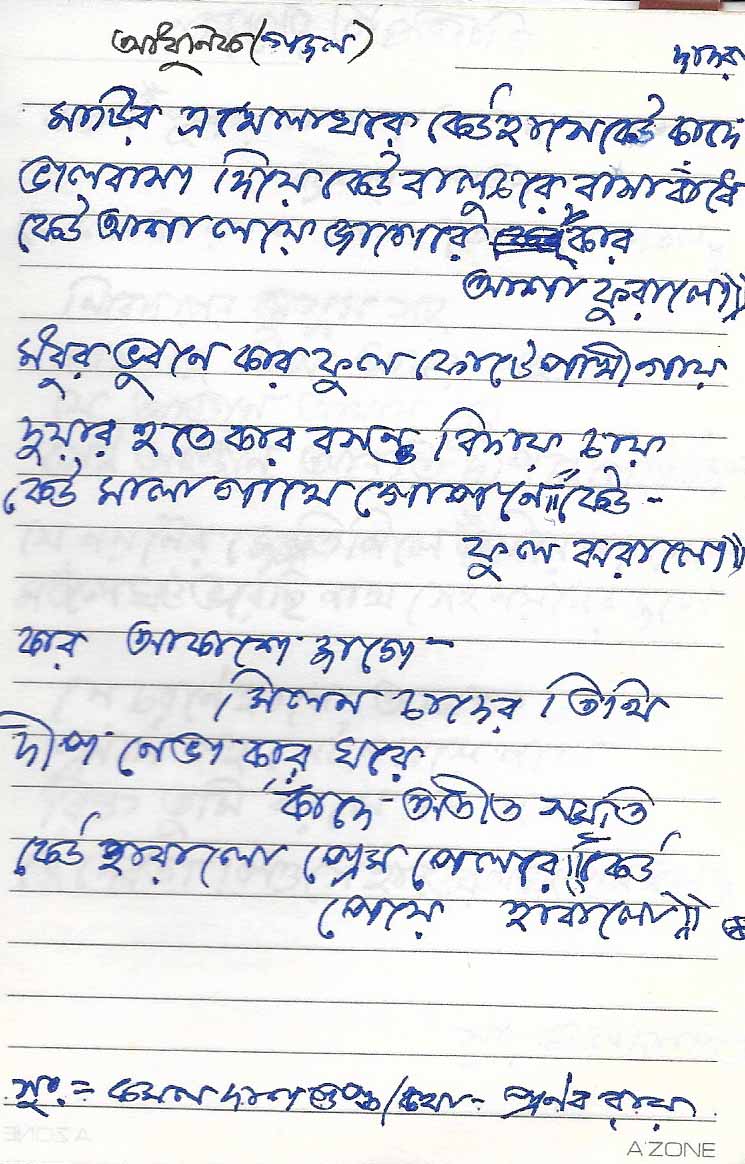 আধুনিক (গজল)
দাদরা
মাটির এ খেলাঘরে কেউ হাসে কেউ কাঁদে
ভালবাসা দিয়ে কেউ বালুচরে বাসা বাঁধে
কেউ আশা লয়ে জাগেরে কার
আশা ফুরালো॥
মধুর ভুবনে কার ফুল ফোটে পাখী গায়
দুয়ার হতে কার বসন্ত বিদায় চায়
কেউ মালা গাঁথে গোপনে॥ কেউ -
ফুল ঝরালো॥
কার আকাশে জাগে -
মিলন চাঁদের তিথি
দীপ নেভা কার ঘরে
কাঁদে - অতীত স্মৃতি
কেউ হারালো প্রেম পেলরে॥ কেউ
পেয়ে হারালো॥
সুর = কমল দাশ গুপ্ত / কথা - প্রণব রায়
A'ZONE